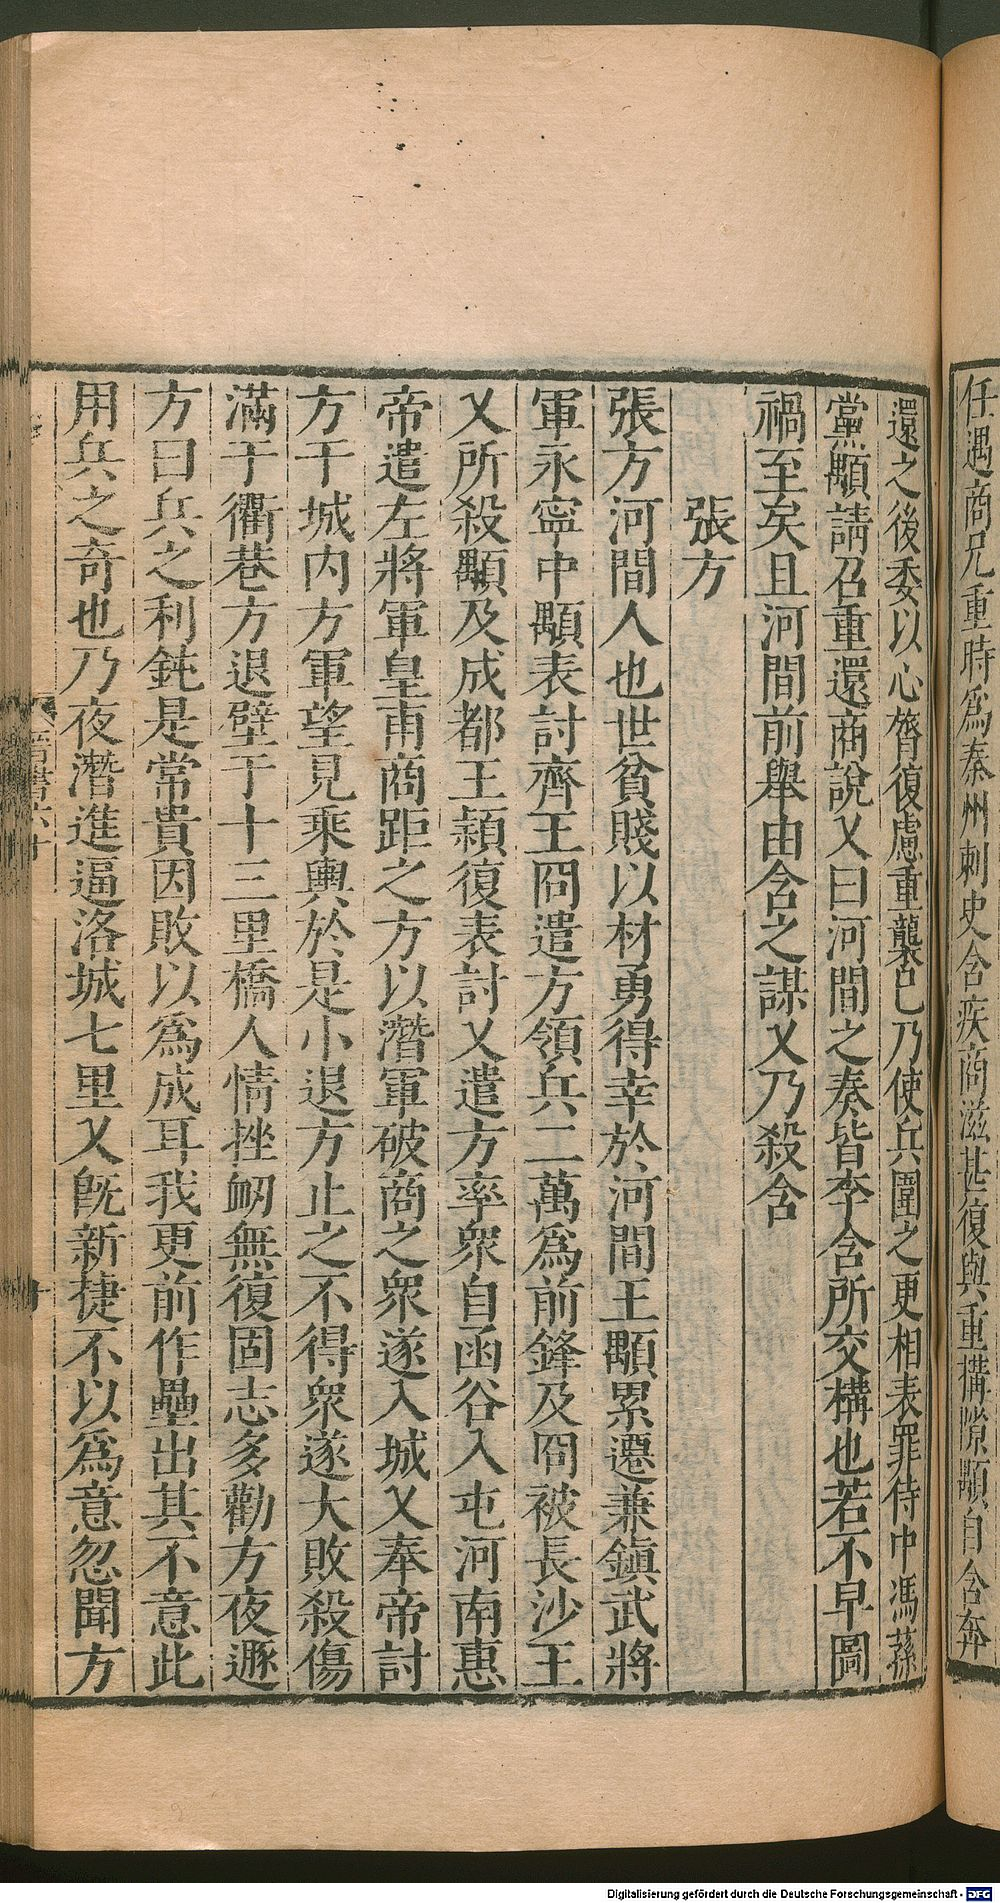 任遇商兄重時爲秦州刺史含疾商滋甚復與重構隙顒自含奔
還之後委以心膂復慮重襲已乃使兵圍之更相表罪侍中馮蓀
黨顒請召重還商說乂曰河間之奏皆李含所交構也若不早圖
禍至矣且河間前舉由含之謀乂乃殺含
張方
張方河間人也世貧賤以材勇得幸於河間王顒累遷兼鎮武將
軍永寧中顒表討齊王冏遣方領兵二萬爲前鋒及冏被長沙王
乂所殺顒及成都王穎復表討乂遣方率衆自函谷入屯河南惠
帝遣左將軍皇甫商距之方以潛軍破商之衆遂入城乂奉帝討
方于城內方軍望見乘輿於是小退方止之不得衆遂大敗殺傷
滿于衢巷方退壁于十三里橋人情挫衂無復固志多勸方夜遯
方曰兵之利鈍是常貴因敗以爲成耳我更前作壘出其不意此
用兵之奇也乃夜潛進逼洛城七里乂旣新捷不以爲意忽聞方
晉書六十
Digitalisierung gefördert durch die Deutsche Forschungsgemeinschaft - DFG